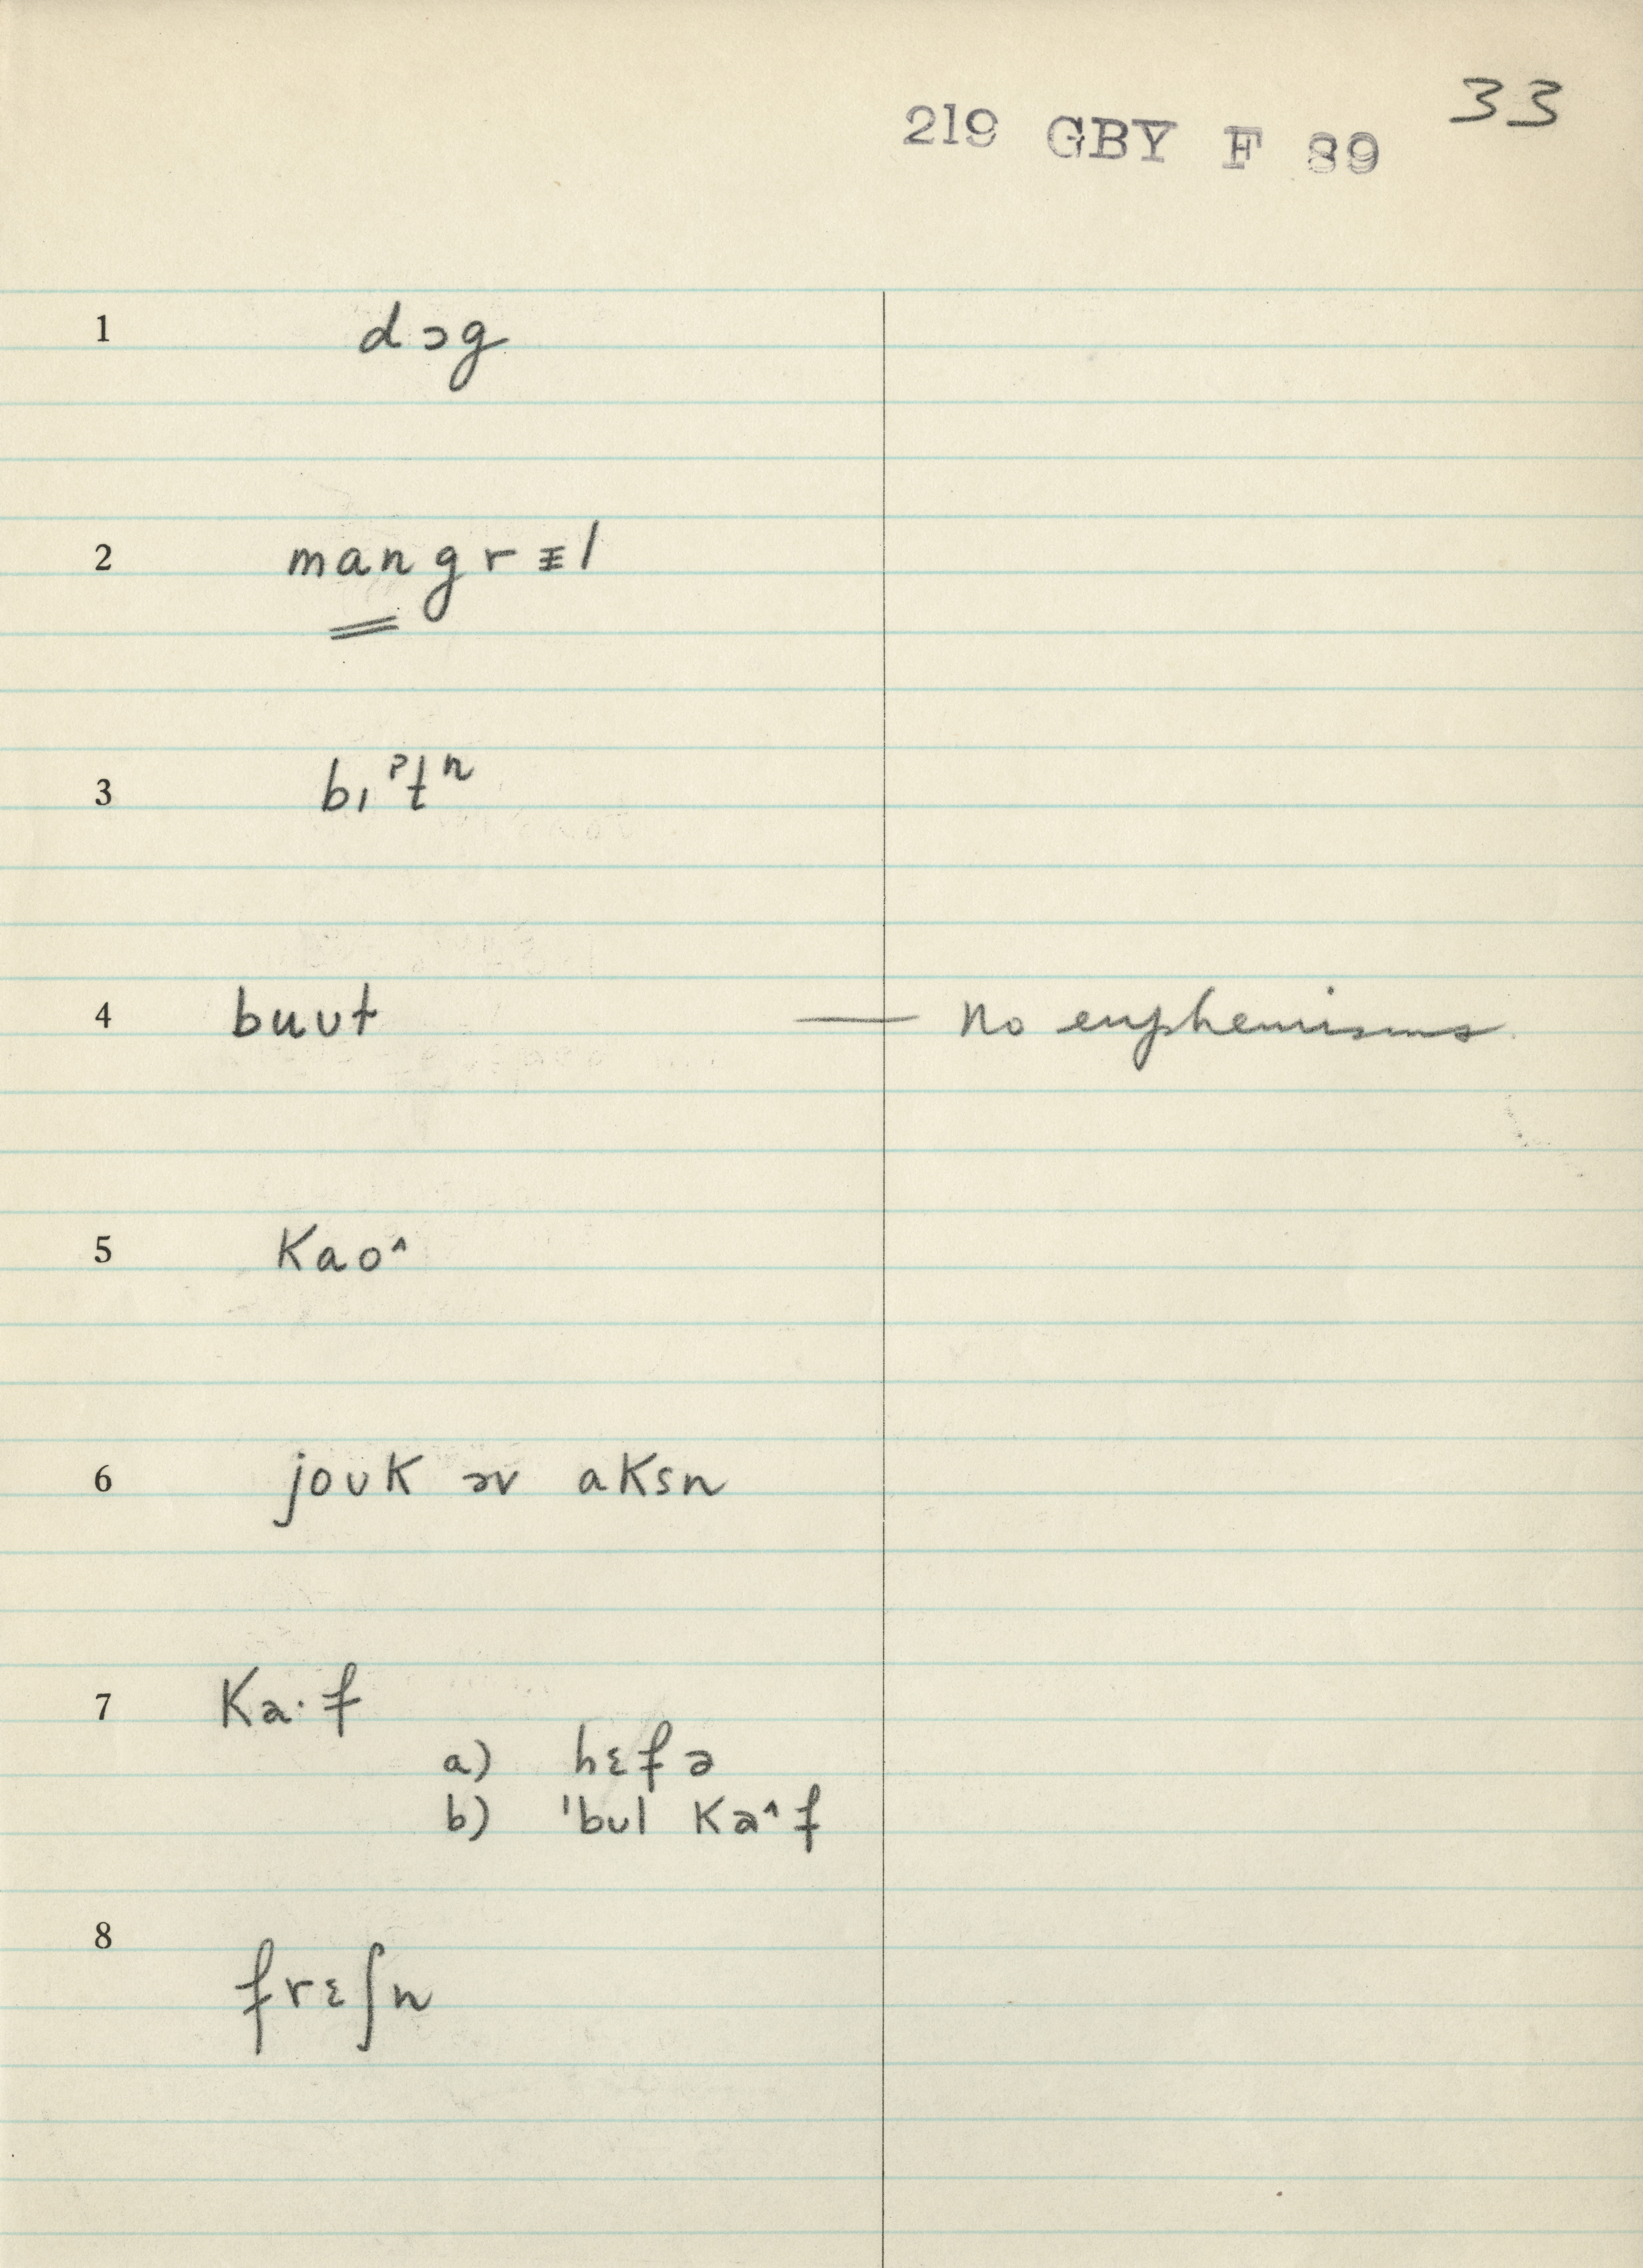 33
219 GBY F 89
1 dɔg
2 mangrɨl
3 bɪˀtⁿ
4 buʊt — no euphemisms
5 kao^
6 joʊk əv aksn
7 ka·f
a) hɛfə
b) 'bʊl ka^f
8 frɛʃn